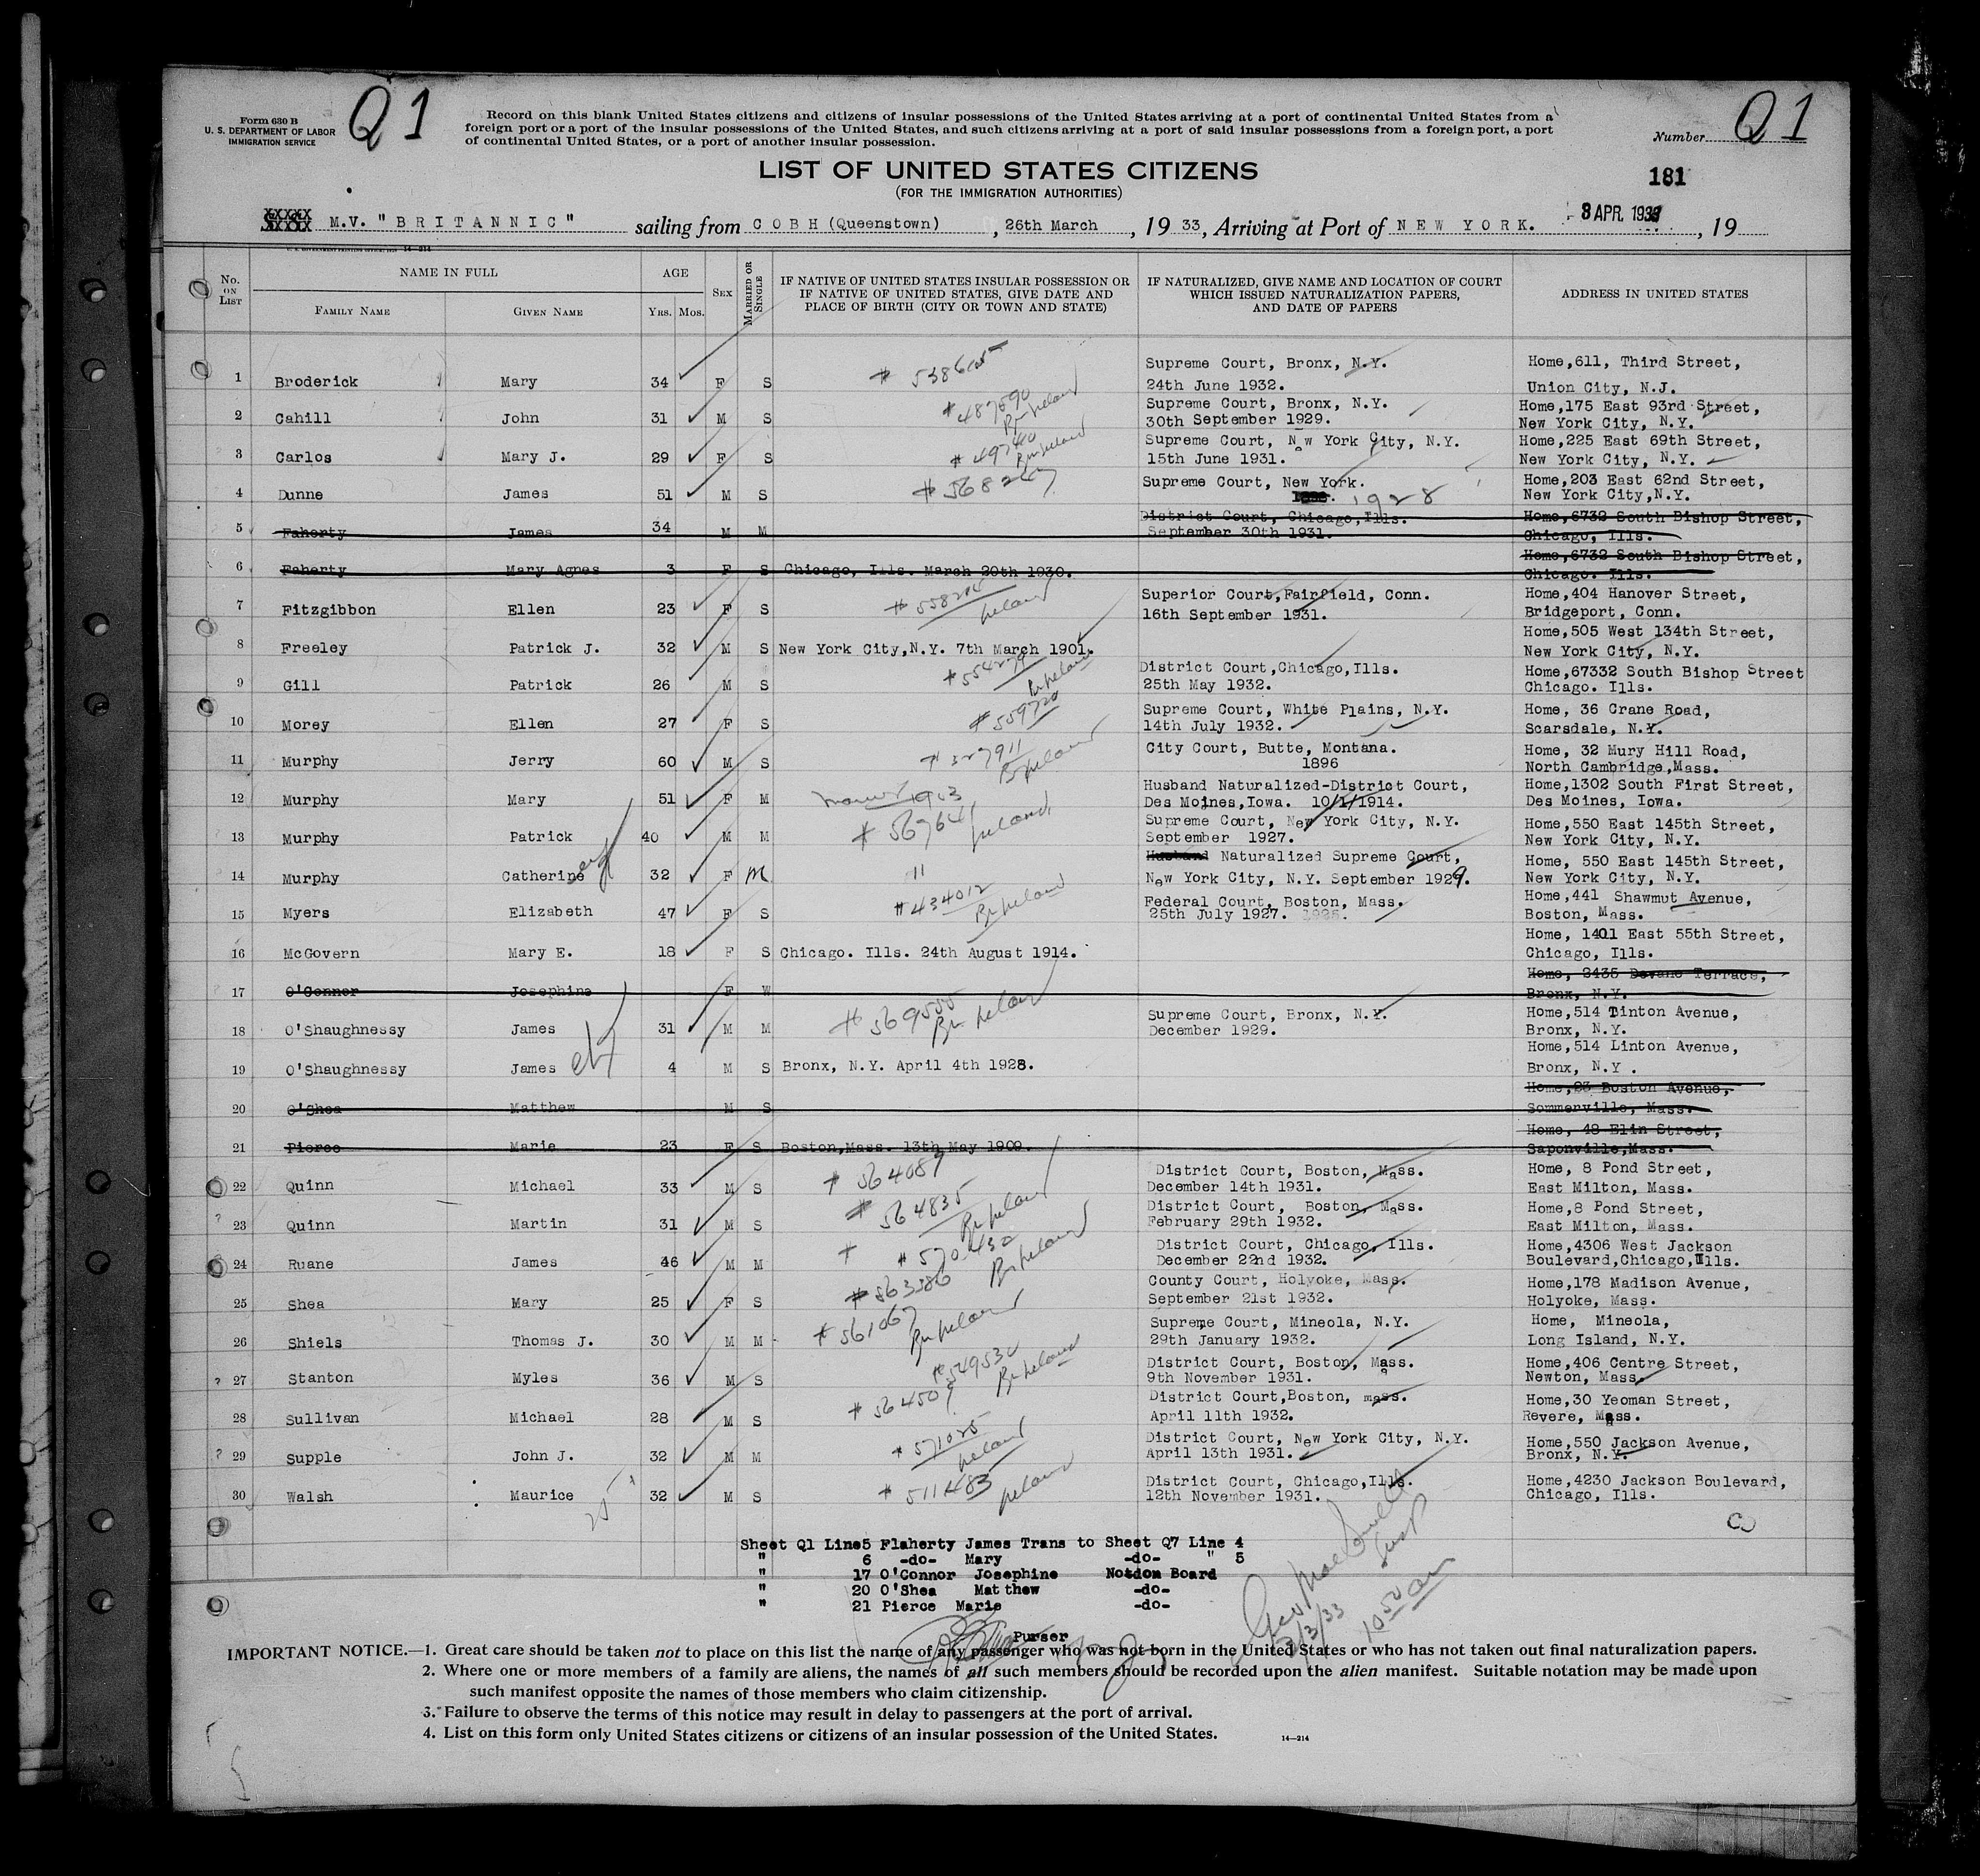 Form 630 B
U. S. DEPARTMENT OF LABOR
IMMIGRATION SERVICE
Q1
Record on this blank United States citizens and citizens of insular possessions of the United States arriving at a port of continental United States from a
foreign port or a port of the insular possessions of the United States, and such citizens arriving at a port of said insular possessions from a foreign port, a port
of continental United States, or a port of another insular possession.
Number Q1
LIST OF UNITED STATES CITIZENS
(FOR THE IMMIGRATION AUTHORITIES)
181
M.V. "BRITANNIC" sailing from COBH (Queenstown), 26th March, 19 33, Arriving at Port of NEW YORK. 3 APR. 1933, 19
No. ON LIST
NAME IN FULL
FAMILY NAME GIVEN NAME
AGE
YRS. MOS.
SEX
MARRIED OR SINGLE
IF NATIVE OF UNITED STATES INSULAR POSSESSION OR
IF NATIVE OF UNITED STATES, GIVE DATE AND
PLACE OF BIRTH (CITY OR TOWN AND STATE)
IF NATURALIZED, GIVE NAME AND LOCATION OF COURT
WHICH ISSUED NATURALIZATION PAPERS,
AND DATE OF PAPERS
ADDRESS IN UNITED STATES
Supreme Court, Bronx, N.Y. Home,611, Third Street,
1 Broderick Mary 34 F S 24th June 1932. Union City, N.J.
Supreme Court, Bronx, N.Y. Home,175 East 93rd Street,
2 Cahill John 31 M S 30th September 1929. New York City, N.Y.
Supreme Court, New York City, N.Y. Home,225 East 69th Street,
3 Carlos Mary J. 29 F S 15th June 1931. New York City, N.Y.
Supreme Court, New York. Home,203 East 62nd Street,
4 Dunne James 51 M S #568247 1928 New York City,N.Y.
District Court, Chicago,Ills. Home,6732 South Bishop Street,
5 Faherty James 34 M M September 30th 1931. Chicago, Ills.
Home,6732 South Bishop Street,
6 Faherty Mary Agnes 3 F S Chicago, Ills. March 20th 1930. Chicago. Ills.
Superior Court,Fairfield, Conn. Home,404 Hanover Street,
7 Fitzgibbon Ellen 23 F S Ireland 16th September 1931. Bridgeport, Conn.
Home,505 West 134th Street,
8 Freeley Patrick J. 32 M S New York City,N.Y. 7th March 1901. New York City, N.Y.
District Court,Chicago,Ills. Home,67332 South Bishop Street
9 Gill Patrick 26 M S 25th May 1932. Chicago. Ills.
Supreme Court, White Plains, N.Y. Home, 36 Crane Road,
10 Morey Ellen 27 F S #559720 14th July 1932. Scarsdale, N.Y.
City Court, Butte, Montana. Home, 32 Mury Hill Road,
11 Murphy Jerry 60 M S #327911 1896 North Cambridge,Mass.
Husband Naturalized-District Court, Home,1302 South First Street,
12 Murphy Mary 51 F M 1903 Des Moines,Iowa. 10/1/1914. Des Moines, Iowa.
Supreme Court, New York City, N.Y. Home,550 East 145th Street,
13 Murphy Patrick 40 M M #567641 Ireland September 1927. New York City, N.Y.
Husband Naturalized Supreme Court, Home, 550 East 145th Street,
14 Murphy Catherine 32 F M 11 New York City, N.Y. September 1929. New York City, N.Y.
Federal Court, Boston, Mass. Home,441 Shawmut Avenue,
15 Myers Elizabeth 47 F S #434012 25th July 1927. Boston, Mass.
Home, 1401 East 55th Street,
16 McGovern Mary E. 18 F S Chicago. Ills. 24th August 1914. Chicago, Ills.
Home, 2435 Devane Terrace,
17 O'Connor Josephine F W Bronx, N.Y.
Supreme Court, Bronx, N.Y. Home,514 Tinton Avenue,
18 O'Shaughnessy James 31 M M #569555 December 1929. Bronx, N.Y.
Home,514 Linton Avenue,
19 O'Shaughnessy James 4 M S Bronx, N.Y. April 4th 1928. Bronx, N.Y .
Home,23 Boston Avenue,
20 O'Shea Matthew M S Sommerville, Mass.
Home, 48 Elin Street,
21 Pierce Marie 23 F S Boston,Mass. 13th May 1909. Saponville,Mass.
District Court, Boston, Mass. Home, 8 Pond Street,
22 Quinn Michael 33 M S #564087 December 14th 1931. East Milton, Mass.
District Court, Boston, Mass. Home,8 Pond Street,
23 Quinn Martin 31 M S #564835 February 29th 1932. East Milton, Mass.
District Court, Chicago, Ills. Home,4306 West Jackson
24 Ruane James 46 M M #570432 December 22nd 1932. Boulevard,Chicago,Ills.
County Court, Holyoke, Mass. Home,178 Madison Avenue,
25 Shea Mary 25 F S #563386 September 21st 1932. Holyoke, Mass.
Supreme Court, Mineola, N.Y. Home, Mineola,
26 Shiels Thomas J. 30 M M #561067 29th January 1932. Long Island, N.Y.
District Court, Boston, Mass. Home,406 Centre Street,
27 Stanton Myles 36 M S 9th November 1931. Newton, Mass.
District Court,Boston, mass. Home,30 Yeoman Street,
28 Sullivan Michael 28 M S #564507 April 11th 1932. Revere, Mass.
District Court, New York City, N.Y. Home,550 Jackson Avenue,
29 Supple John J. 32 M M #571025 Ireland April 13th 1931. Bronx, N.Y.
District Court, Chicago,Ills. Home,4230 Jackson Boulevard,
30 Walsh Maurice 32 M S #511483 Ireland 12th November 1931. Chicago, Ills.
Sheet Q1 Line5 Flaherty James Trans to Sheet Q7 Line 4
" 6 -do- Mary -do- " 5
" 17 O'Connor Josephine Noton Board
" 20 O'Shea Matthew -do-
" 21 Pierce Marie -do-
Purser
10 50 am
IMPORTANT NOTICE.—1. Great care should be taken not to place on this list the name of any passenger who was not born in the United States or who has not taken out final naturalization papers.
2. Where one or more members of a family are aliens, the names of all such members should be recorded upon the alien manifest. Suitable notation may be made upon
such manifest opposite the names of those members who claim citizenship.
3. Failure to observe the terms of this notice may result in delay to passengers at the port of arrival.
4. List on this form only United States citizens or citizens of an insular possession of the United States.
14—214